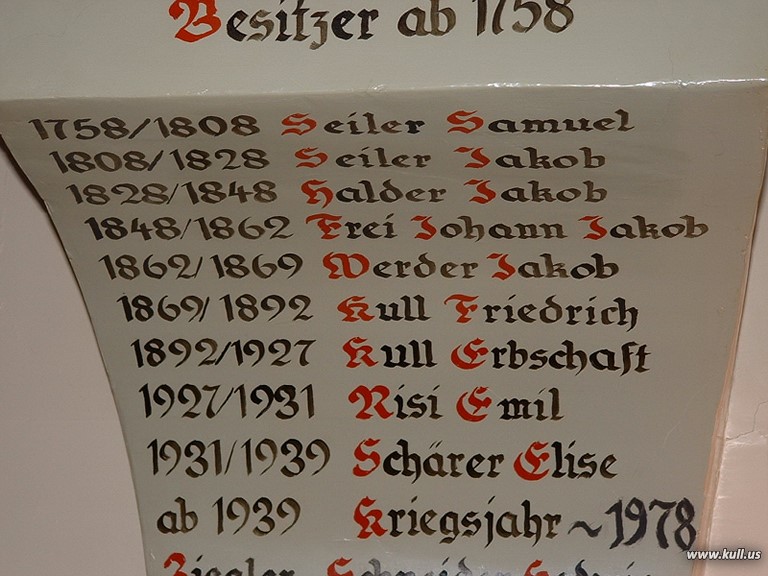 Besitzer ab 1758
1758/1808 Seiler Samuel
1808/1828 Seiler Jakob
1828/1848 Halder Jakob
1848/1862 Frei Johann Jakob
1862/1869 Werder Jakob
1869/1892 Kull Friedrich
1892/1927 Kull Erbschaft
1927/1931 Risi Emil
1931/1939 Schärer Elise
ab 1939 Kriegsjahr ~1978
Ziegler Schneider Hedwig
www.kull.us